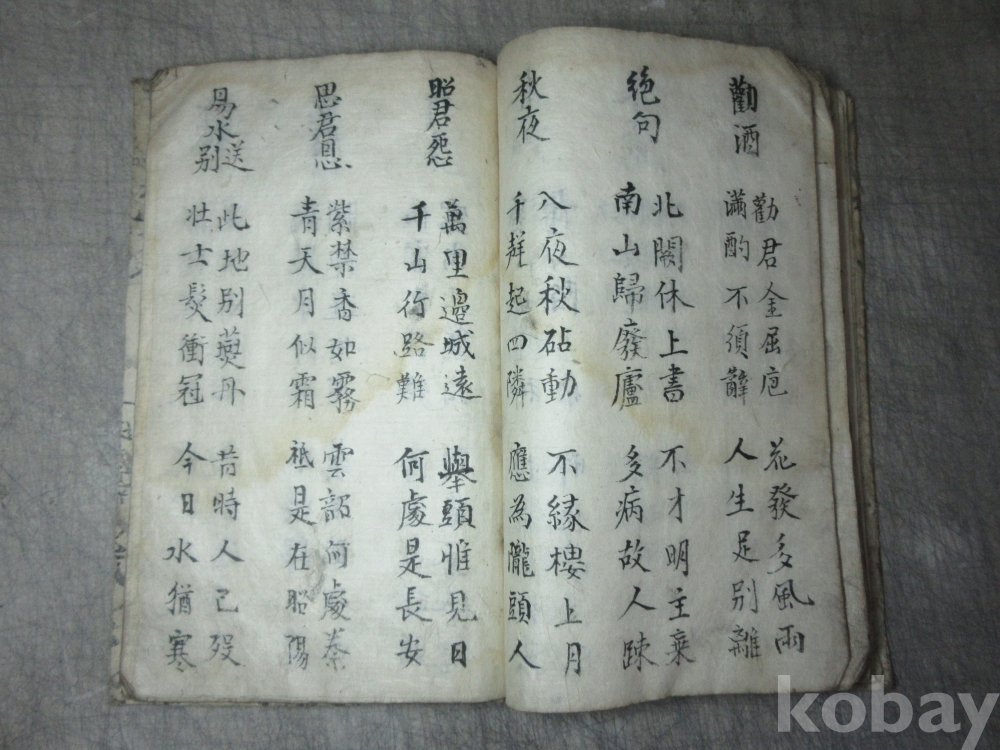 勸酒
勸君金屈巵
滿酌不須辭
花發多風雨
人生足別離
絶句
北闕休上書
南山歸廢廬
不才明主棄
多病故人踈
秋夜
八夜秋砧動
千群起四隣
不緣樓上月
應為隴頭人
昭君怨
萬里邊城遠
千山行路難
擧頭惟見日
何處是長安
思君恩
紫禁香如霧
青天月似霜
雲韶何處奏
祗是在昭陽
易水送別
此地別燕丹
壯士髮衝冠
昔時人已歿
今日水猶寒
kobay